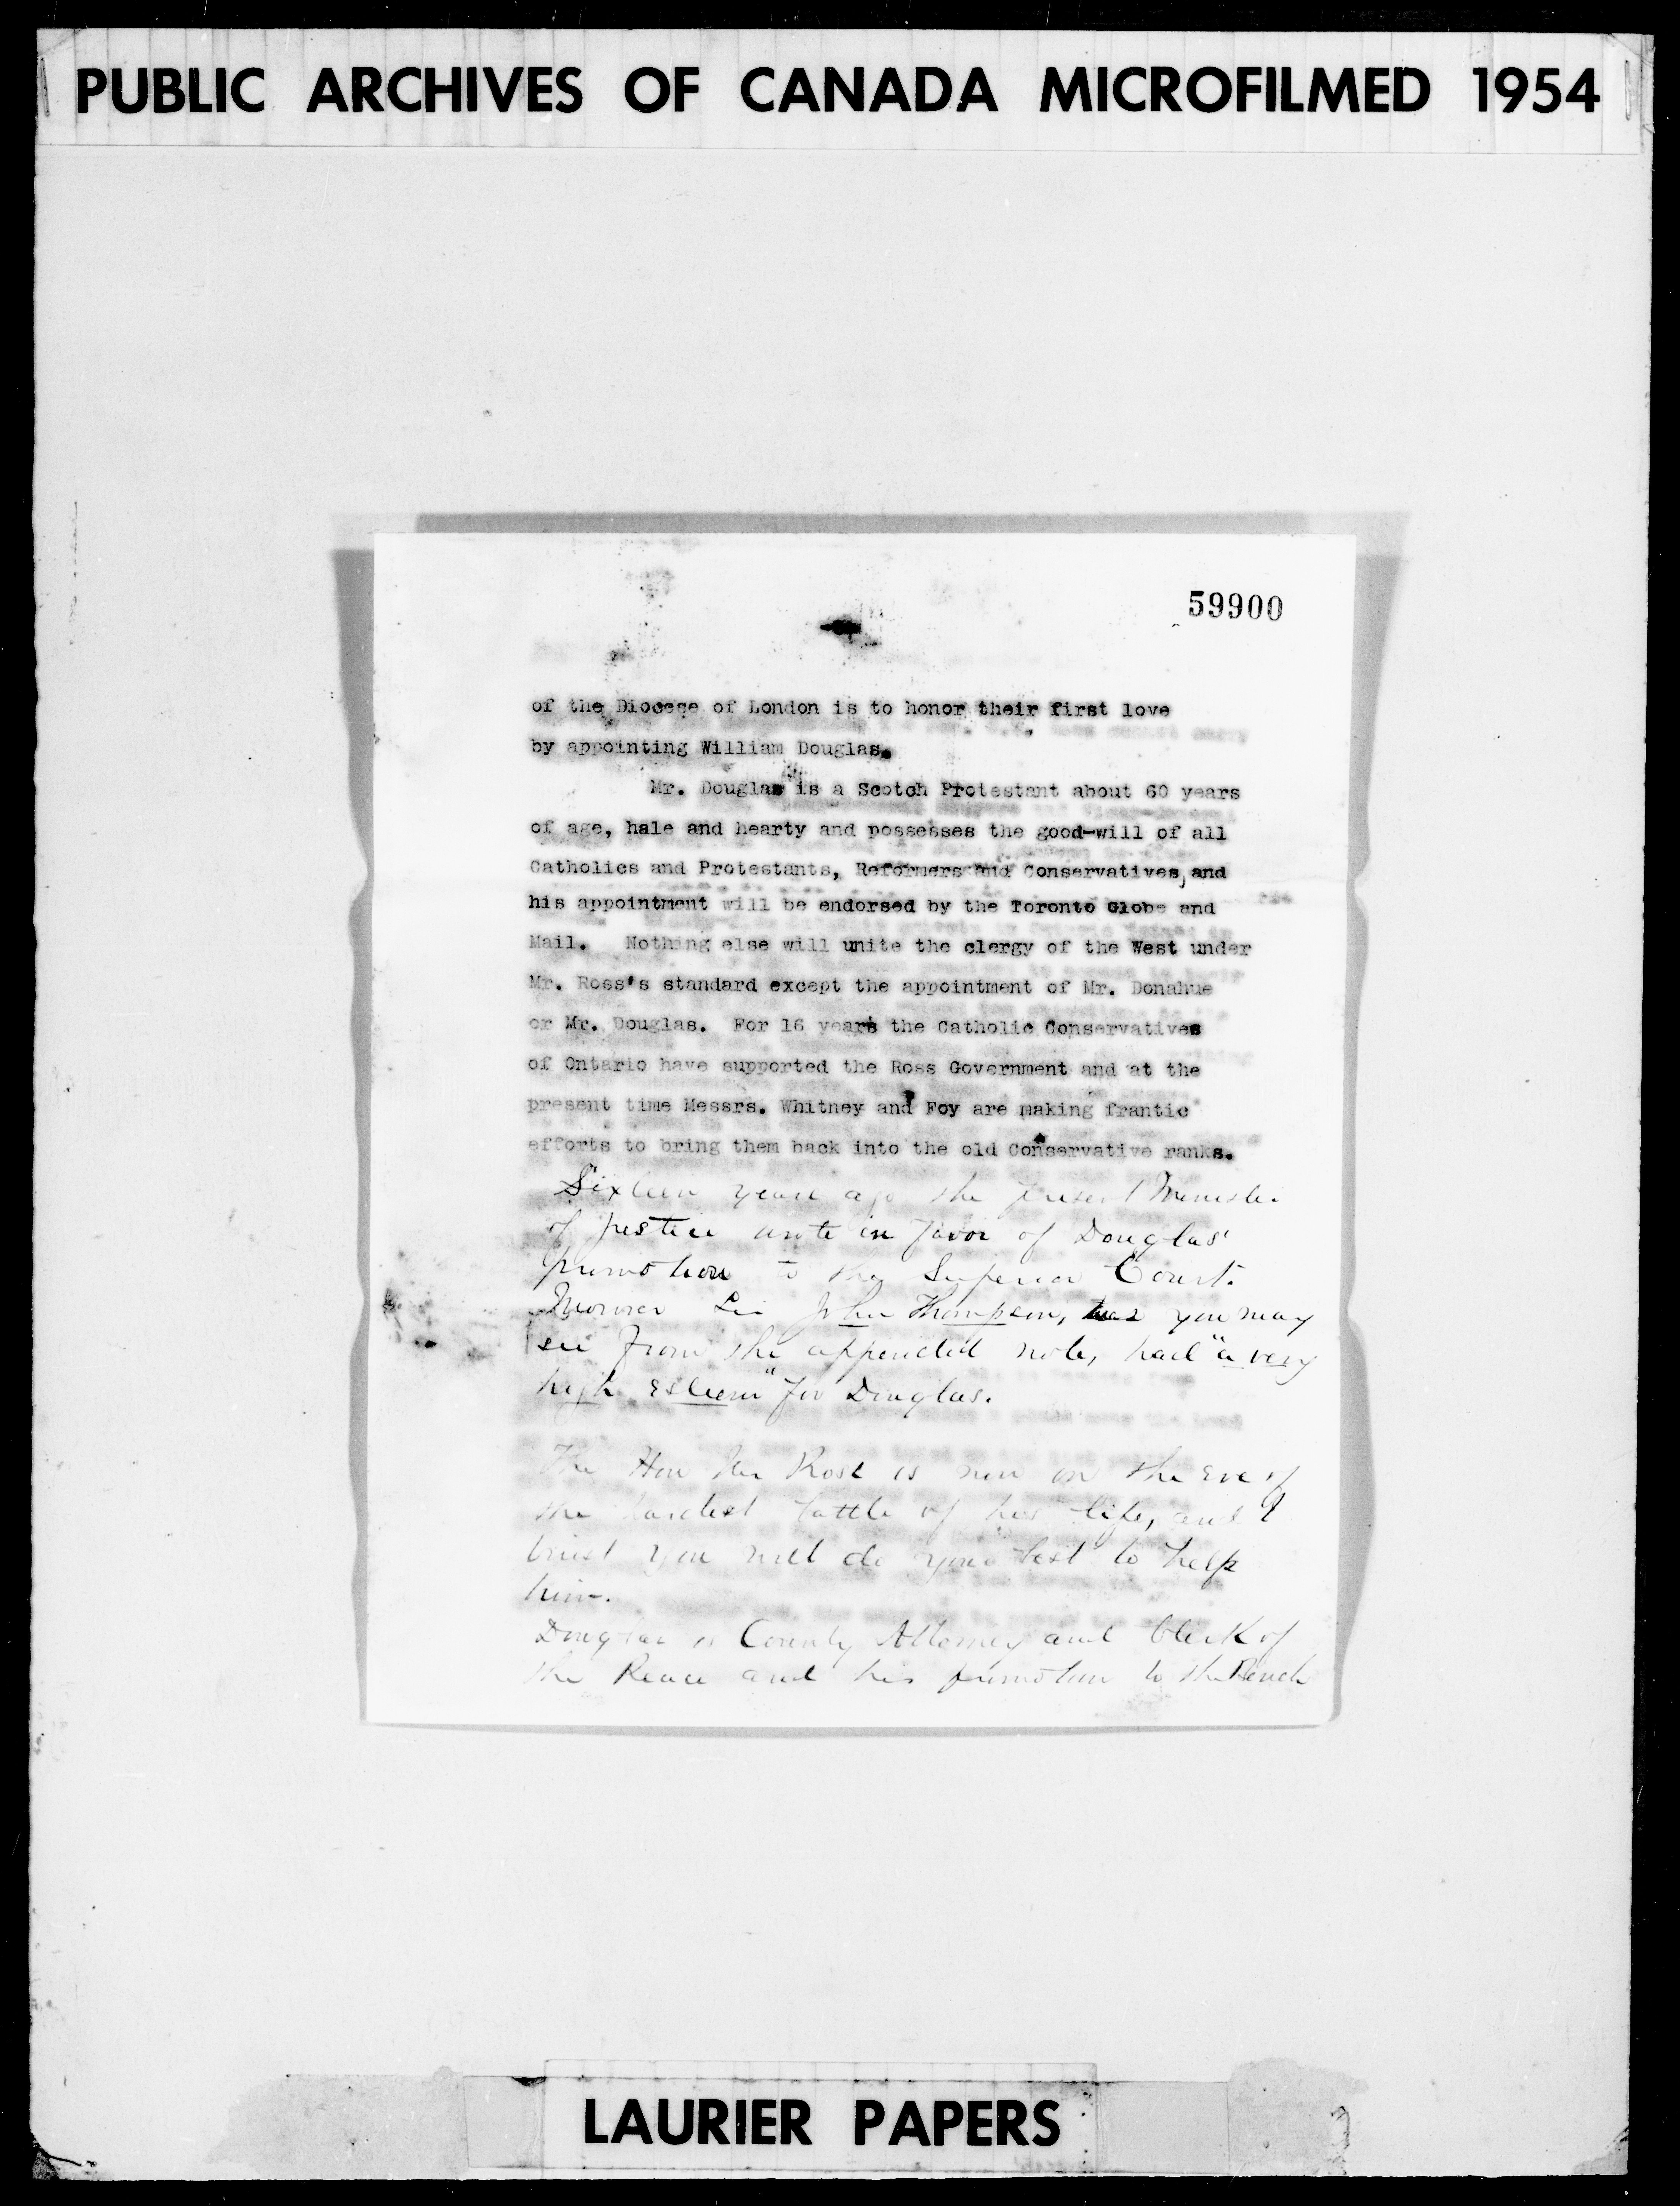 PUBLIC ARCHIVES OF CANADA MICROFILMED 1954
59900
of the Diocese of London is to honor their first love
by appointing William Douglas.
Mr. Douglas is a Scotch Protestant about 60 years
of age, hale and hearty and possesses the good-will of all
Catholics and Protestants, Reformers and Conservatives, and
his appointment will be endorsed by the Toronto Globe and
Mail. Nothing else will unite the clergy of the West under
Mr. Ross's standard except the appointment of Mr. Donahue
or Mr. Douglas. For 16 years the Catholic Conservatives
of Ontario have supported the Ross Government and at the
present time Messrs. Whitney and Foy are making frantic
efforts to bring them back into the old Conservative ranks.
Sixteen years ago the present Minister
of Justice wrote in favor of Douglas'
promotion to the Superior Court.
Moreover Sir John Thompson, as you may
see from the appended note, had "a very
high esteem" for Douglas.
The Hon Mr Ross is now on the eve of
the hardest battle of his life, and I
trust you will do your best to help
him.
Douglas is County Attorney and Clerk of
the Peace and his promotion to the Bench
LAURIER PAPERS